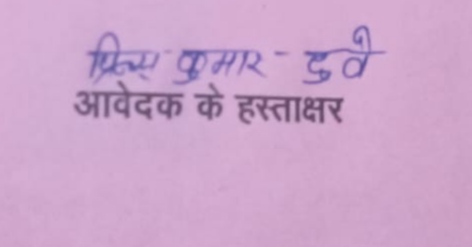 प्रिन्स कुमार - दुवे
आवेदक के हस्ताक्षर